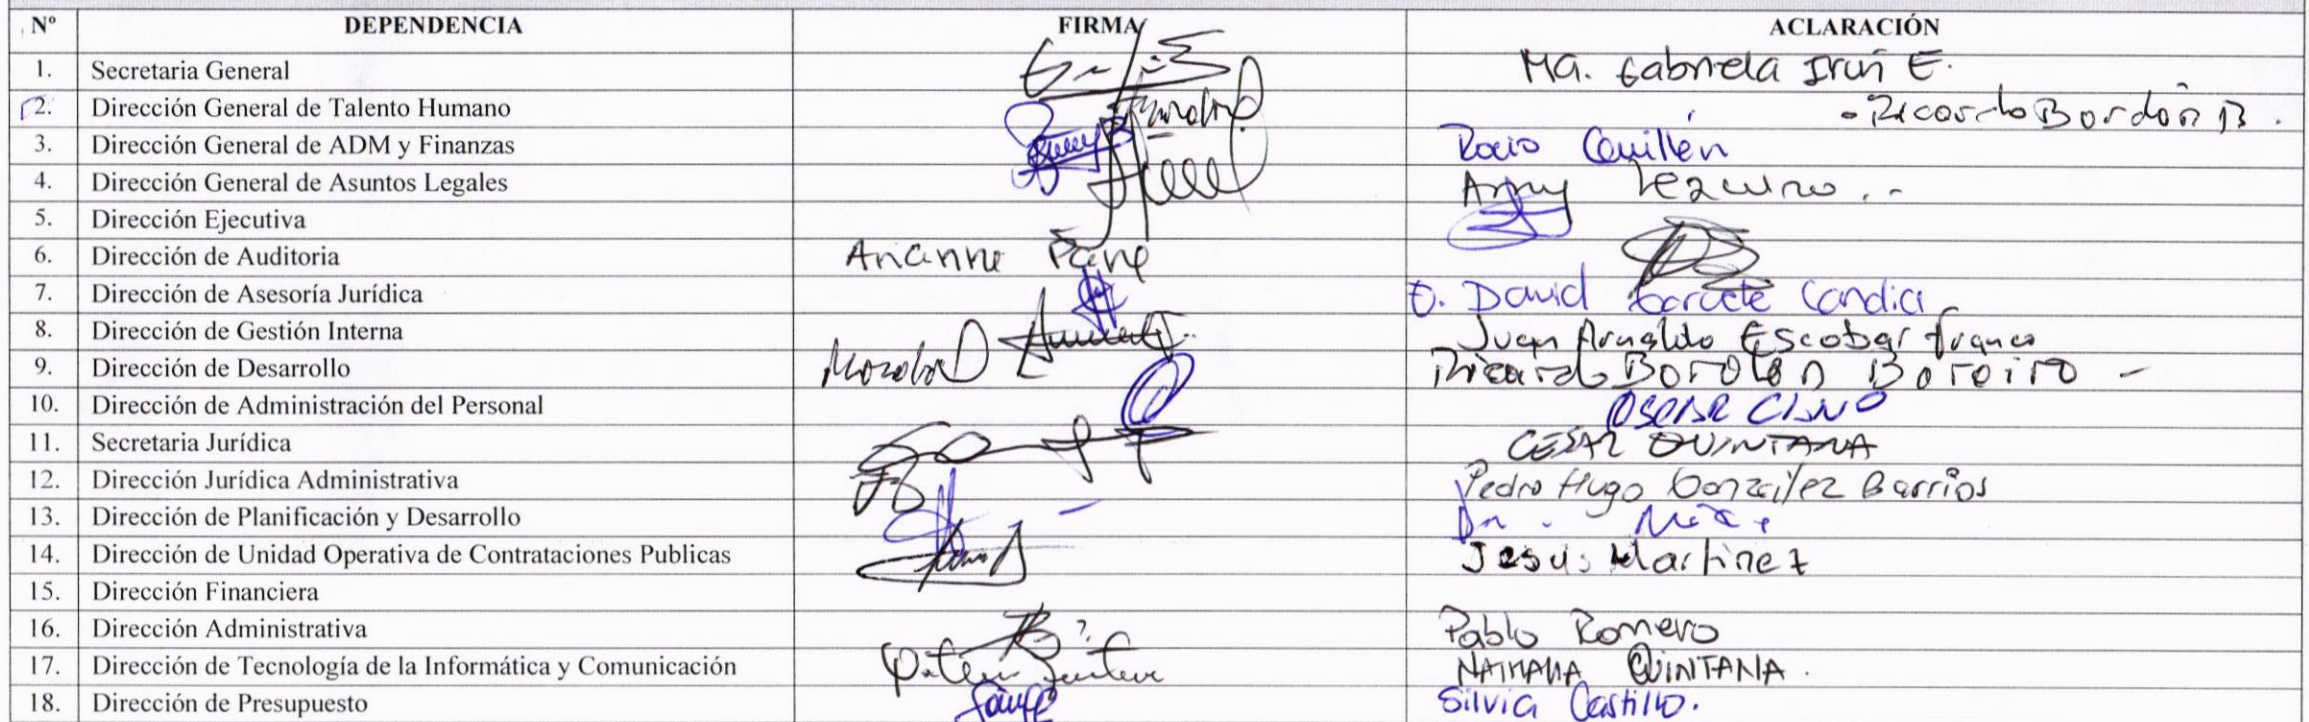 Nº DEPENDENCIA FIRMA ACLARACIÓN
1. Secretaria General Ma. Gabriela Irún E.
2. Dirección General de Talento Humano - Ricardo Bordón B.
3. Dirección General de ADM y Finanzas Rocio
4. Dirección General de Asuntos Legales
5. Dirección Ejecutiva
6. Dirección de Auditoria Arianne
7. Dirección de Asesoría Jurídica David Candia
8. Dirección de Gestión Interna Juan Arnaldo Escobar Franco
9. Dirección de Desarrollo Ricardo Bordón
10. Dirección de Administración del Personal
11. Secretaria Jurídica CESAR QUINTANA
12. Dirección Jurídica Administrativa Pedro Hugo González Barrios
13. Dirección de Planificación y Desarrollo
14. Dirección de Unidad Operativa de Contrataciones Publicas Jesus Martinez
15. Dirección Financiera
16. Dirección Administrativa Pablo Romero
17. Dirección de Tecnología de la Informática y Comunicación QUINTANA.
18. Dirección de Presupuesto Silvia Castillo.